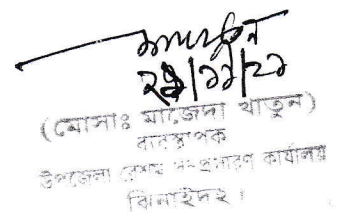 ২৯/১১/২১
(মোসাঃ মাজেদা খাতুন)
ব্যবস্থাপক
উপজেলা রেশম সম্প্রসারণ কার্যালয়
ঝিনাইদহ।